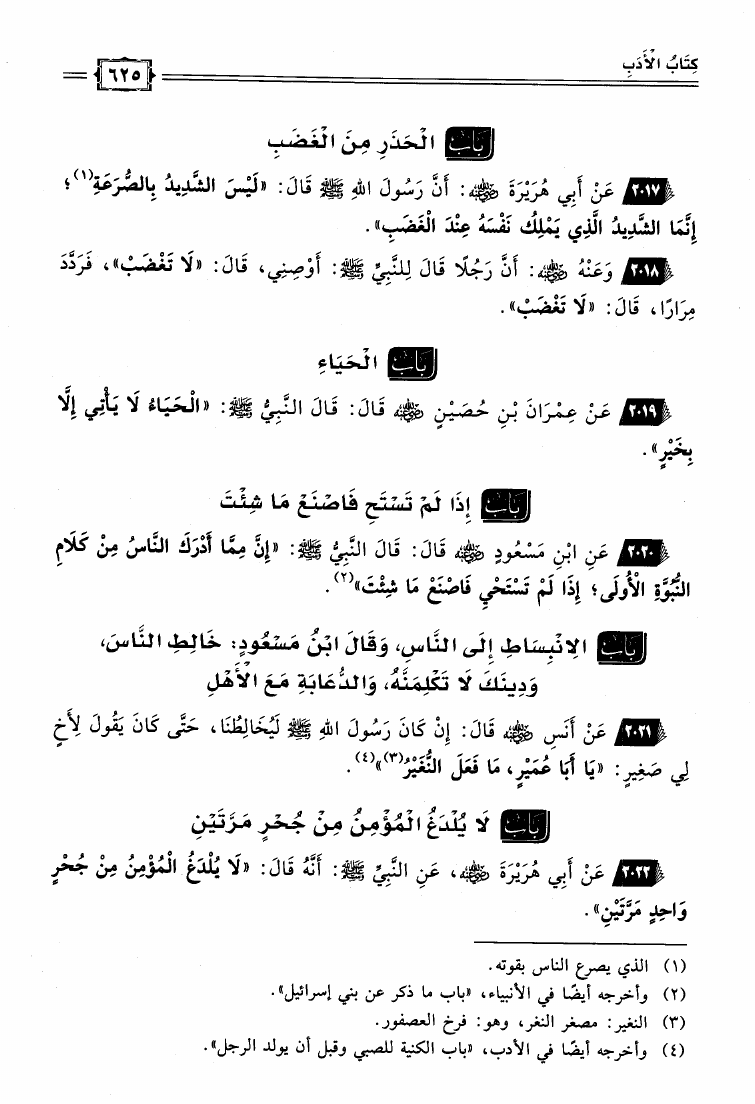 كِتَابُ الْأَدَبِ
٦٢٥
بَابُ الْحَذَرِ مِنَ الْغَضَبِ
٢٠١٧ عَنْ أَبِي هُرَيْرَةَ رضي الله عنه: أَنَّ رَسُولَ اللهِ ﷺ قَالَ: «لَيْسَ الشَّدِيدُ بِالصُّرَعَةِ(١)؛
إِنَّمَا الشَّدِيدُ الَّذِي يَمْلِكُ نَفْسَهُ عِنْدَ الْغَضَبِ».
٢٠١٨ وَعَنْهُ رضي الله عنه: أَنَّ رَجُلًا قَالَ لِلنَّبِيِّ ﷺ: أَوْصِنِي، قَالَ: «لَا تَغْضَبْ»، فَرَدَّدَ
مِرَارًا، قَالَ: «لَا تَغْضَبْ».
بَابُ الْحَيَاءِ
٢٠١٩ عَنْ عِمْرَانَ بْنِ حُصَيْنٍ رضي الله عنه قَالَ: قَالَ النَّبِيُّ ﷺ: «الْحَيَاءُ لَا يَأْتِي إِلَّا
بِخَيْرٍ».
بَابُ إِذَا لَمْ تَسْتَحِ فَاصْنَعْ مَا شِئْتَ
٢٠٢٠ عَنِ ابْنِ مَسْعُودٍ رضي الله عنه قَالَ: قَالَ النَّبِيُّ ﷺ: «إِنَّ مِمَّا أَدْرَكَ النَّاسُ مِنْ كَلَامِ
النُّبُوَّةِ الْأُولَى؛ إِذَا لَمْ تَسْتَحْيِ فَاصْنَعْ مَا شِئْتَ»(٢).
بَابُ الِانْبِسَاطِ إِلَى النَّاسِ، وَقَالَ ابْنُ مَسْعُودٍ: خَالِطِ النَّاسَ،
وَدِينَكَ لَا تَكْلِمَنَّهُ، وَالدُّعَابَةِ مَعَ الْأَهْلِ
٢٠٢١ عَنْ أَنَسٍ رضي الله عنه قَالَ: إِنْ كَانَ رَسُولَ اللهِ ﷺ لَيُخَالِطُنَا، حَتَّى كَانَ يَقُولَ لِأَخٍ
لِي صَغِيرٍ: «يَا أَبَا عُمَيْرٍ، مَا فَعَلَ النُّغَيْرُ(٣)»(٤).
بَابُ لَا يُلْدَغُ الْمُؤْمِنُ مِنْ جُحْرٍ مَرَّتَيْنِ
٢٠٢٢ عَنْ أَبِي هُرَيْرَةَ رضي الله عنه، عَنِ النَّبِيِّ ﷺ: أَنَّهُ قَالَ: «لَا يُلْدَغُ الْمُؤْمِنُ مِنْ جُحْرٍ
وَاحِدٍ مَرَّتَيْنِ».
(١) الذي يصرع الناس بقوته.
(٢) وأخرجه أيضًا في الأنبياء، «باب ما ذكر عن بني إسرائيل».
(٣) النغير: مصغر النغر، وهو: فرخ العصفور.
(٤) وأخرجه أيضًا في الأدب، «باب الكنية للصبي وقبل أن يولد الرجل».